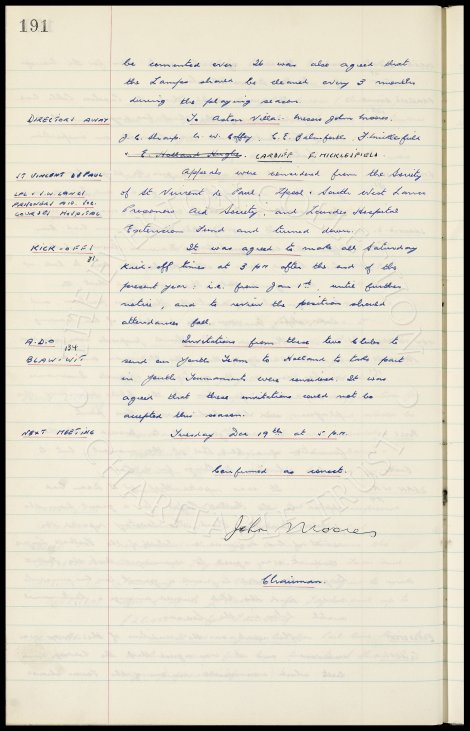 191
be cemented over. It was also agreed that
the Lamps should be cleaned every 3 months
during the playing season.
DIRECTORS AWAY
To Aston Villa. Messrs John Moores.
J. C. Sharp. W. W. Coffey, C. E. Balmforth F. Micklefield
& E. Holland Hughes. CARDIFF F. MICKLEFIELD.
ST VINCENT DE PAUL
L'POL & S.W. LANCS
PRISONERS AID SOC.
LOURDES HOSPITAL
Appeals were considered from the Society
of St Vincent de Paul, L'pool & South West Lancs
Prisoners Aid Society, and Lourdes Hospital
Extension Fund and turned down.
KICK-OFFS
81.
It was agreed to make all Saturday
Kick-off times at 3 p.m. after the end of the
present year: i.e. from Jan 1st. until further
notice, and to review the position should
attendances fall.
A.D.O 134
BLAUWWIT
Invitations from these two Clubs to
send our Youth Team to Holland to take part
in Youth Tournaments were considered. It was
agreed that these invitations could not be
accepted this season.
NEXT MEETING
Tuesday Dec 19th at 5 p.m.
Confirmed as correct.
John Moores
Chairman.